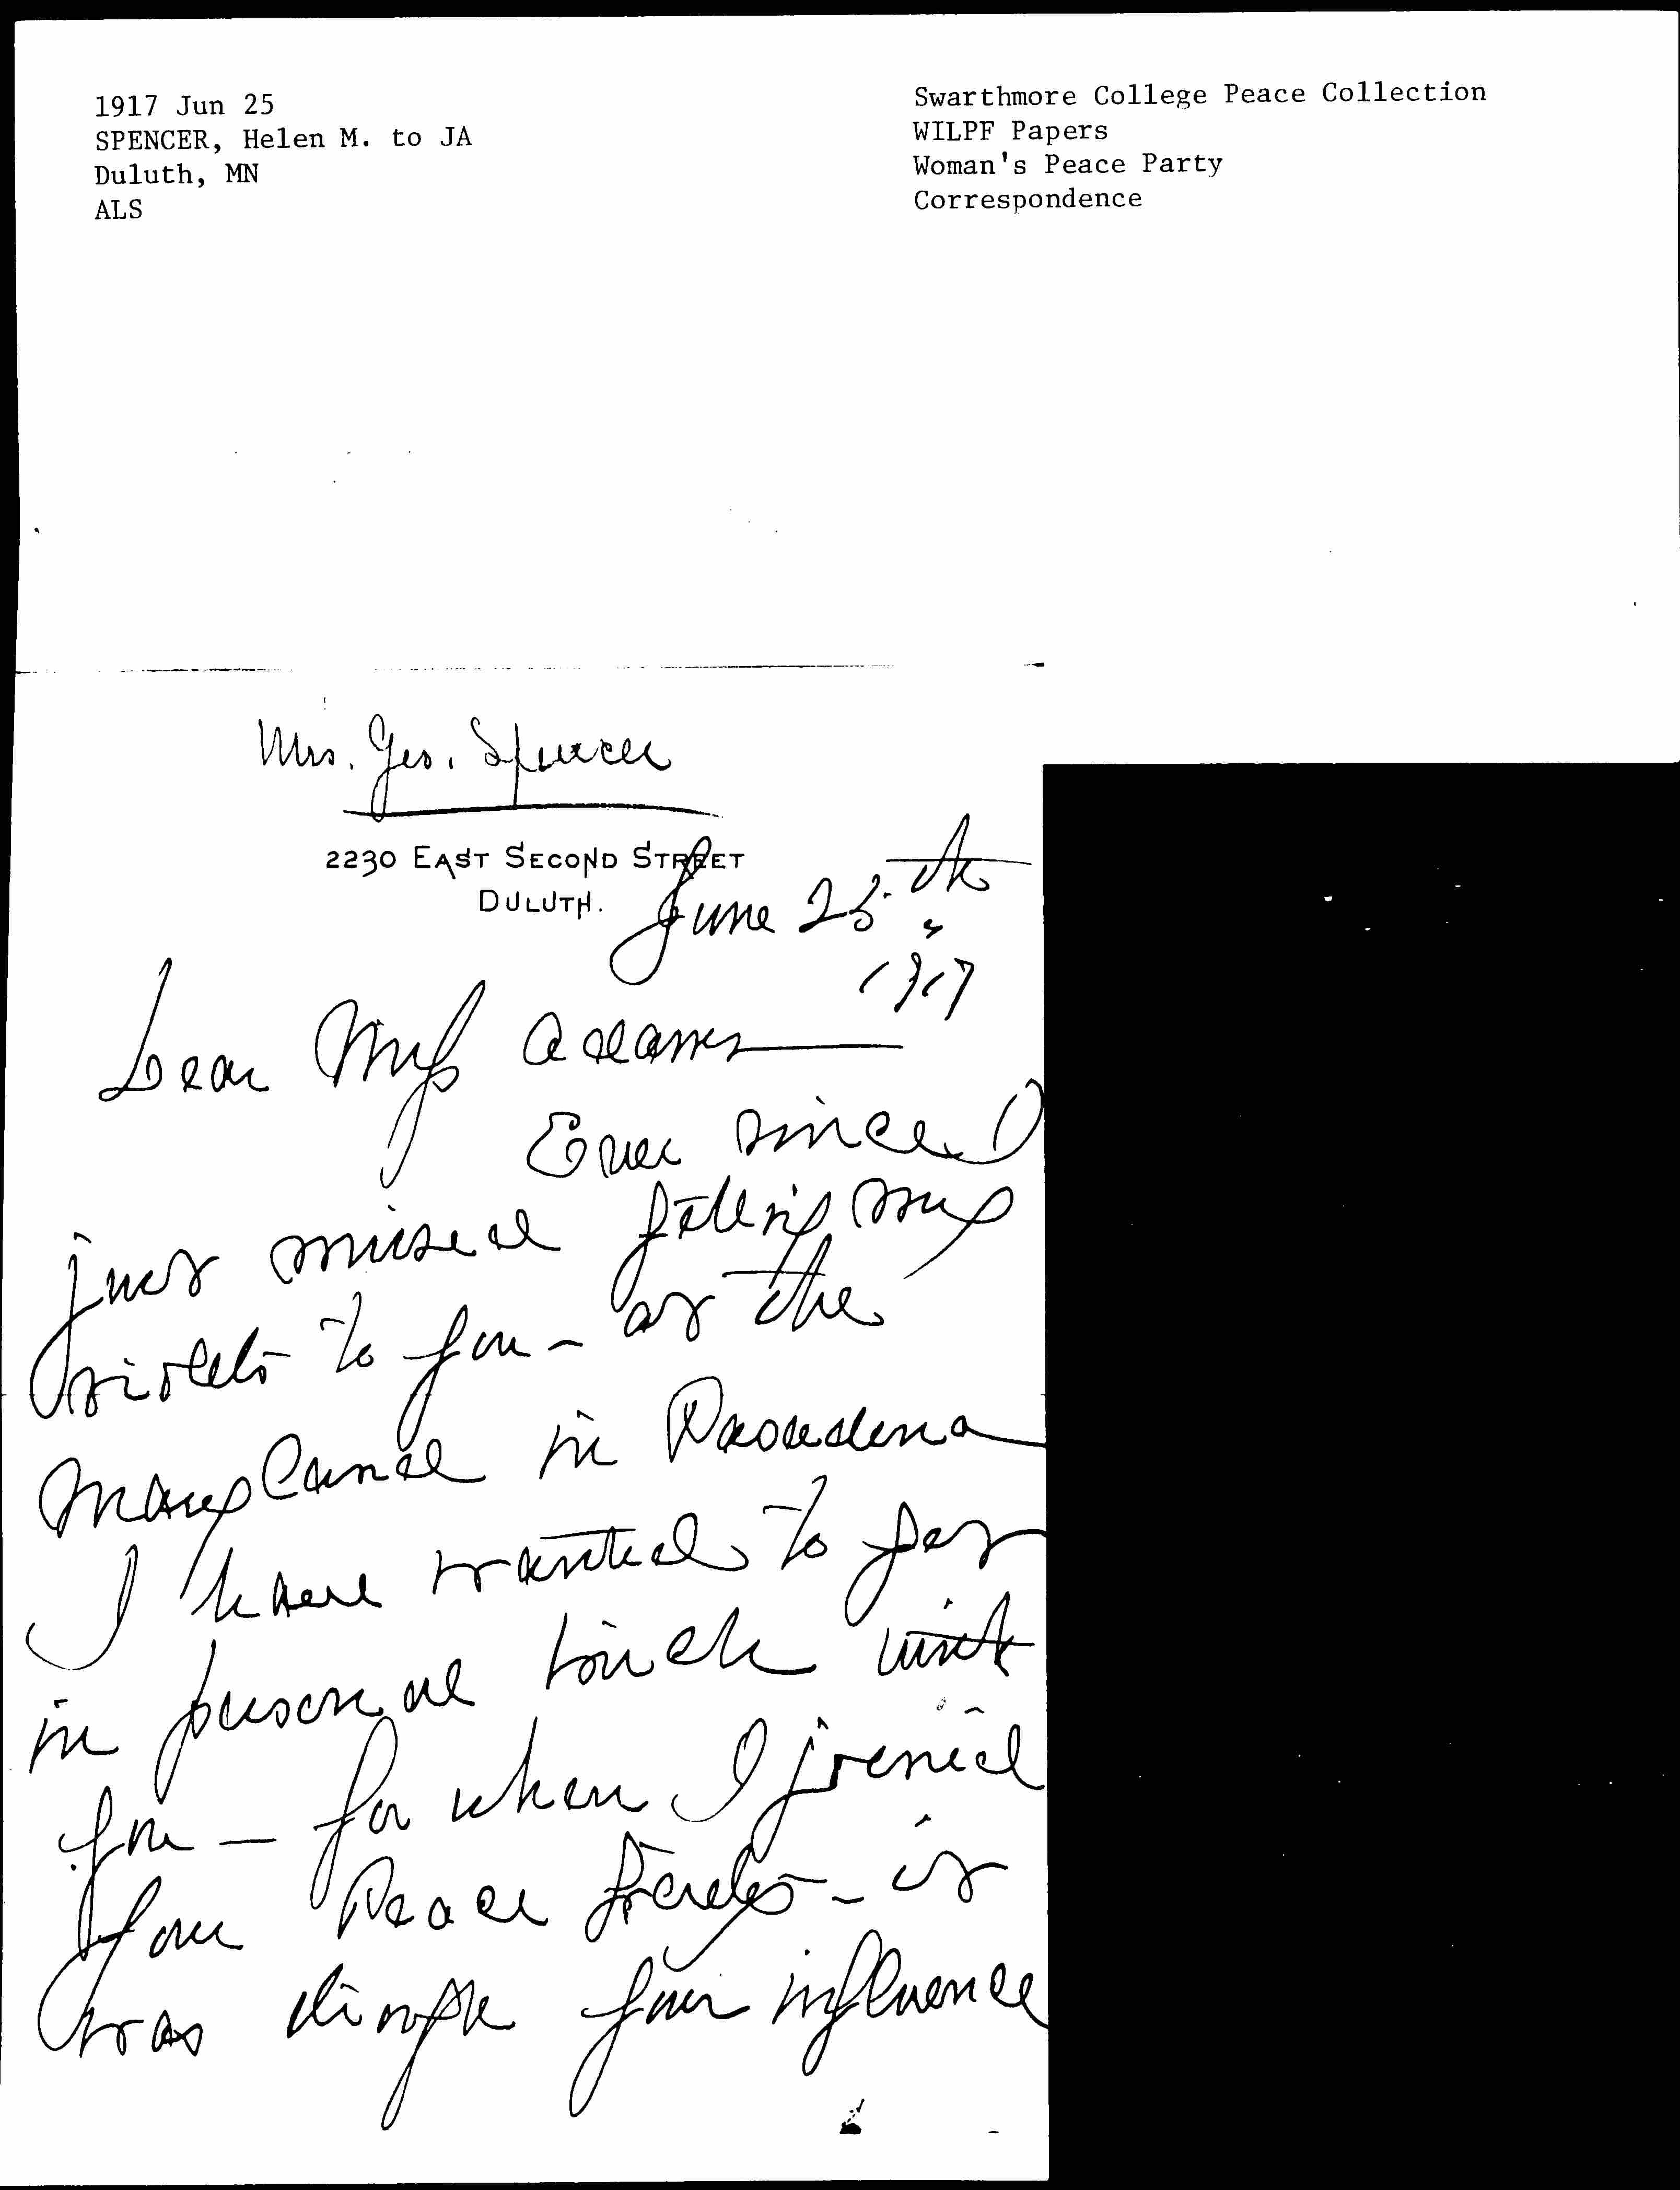 1917 Jun 25
SPENCER, Helen M. to JA
Duluth, MN
ALS
Swarthmore College Peace Collection
WILPF Papers
Woman's Peace Party
Correspondence
Mrs. Geo. Spencer
2230 EAST SECOND STREET
DULUTH.
June 25th,
1917
Dear Miss Addams
Ever since I
just missed getting my
violets to you - at the
Maryland in Pasadena
I have wanted to get
in personal touch with
you - for when I joined
your Peace - it
was simple your influence